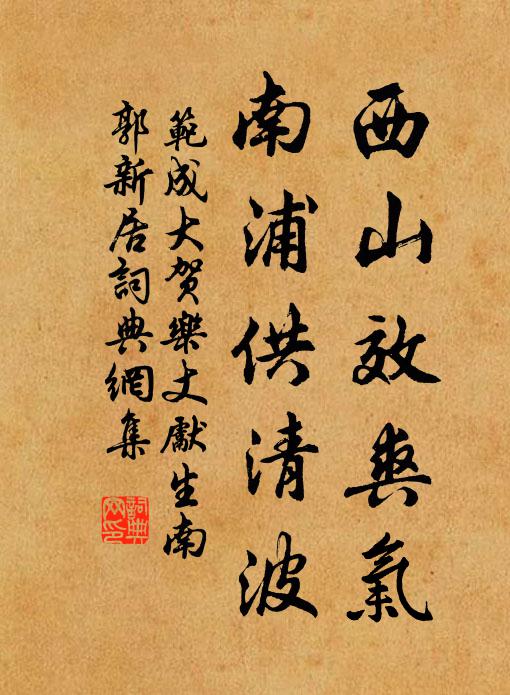 西山效爽氣
南浦供清波
範成大贺樂丈獻生南
郭新居詞典網集
詞典網印